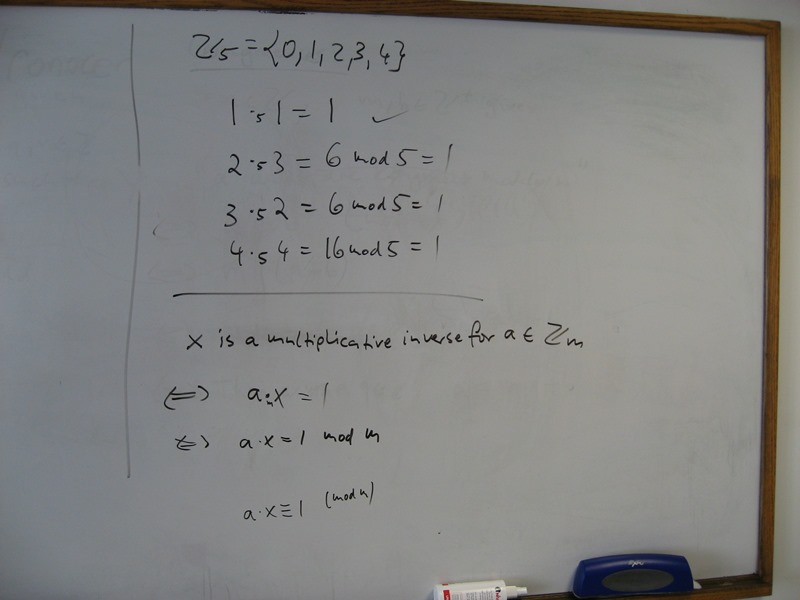 ℤ₅ = {0, 1, 2, 3, 4}
1 ·₅ 1 = 1 ✓
2 ·₅ 3 = 6 mod 5 = 1
3 ·₅ 2 = 6 mod 5 = 1
4 ·₅ 4 = 16 mod 5 = 1
x is a multiplicative inverse for a ∈ ℤm
⇔ a ·ₘ x = 1
⇔ a · x = 1 mod m
a · x ≡ 1 (mod m)